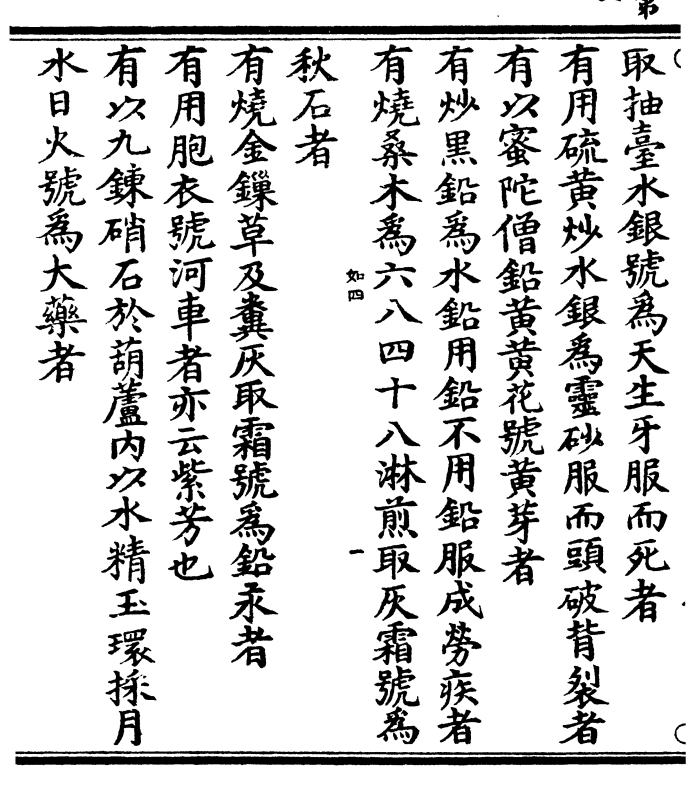 第
取抽臺水銀號為天生牙服而死者
有用硫黃炒水銀為靈砂服而頭破背裂者
有以蜜陀僧鉛黃黃花號黃芽者
有炒黑鉛為水鉛用鉛不用鉛服成勞疾者
有燒桑木為六八四十八淋煎取灰霜號為
如四
一
秋石者
有燒金鏁草及糞灰取霜號為鉛汞者
有用胞衣號河車者亦云紫芳也
有以九鍊硝石於葫蘆內以水精玉環採月
水日火號為大藥者